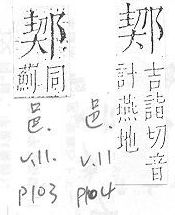 吉詣切音
計燕地
邑.
v.11
p104
同
薊
邑.
v.11.
p103